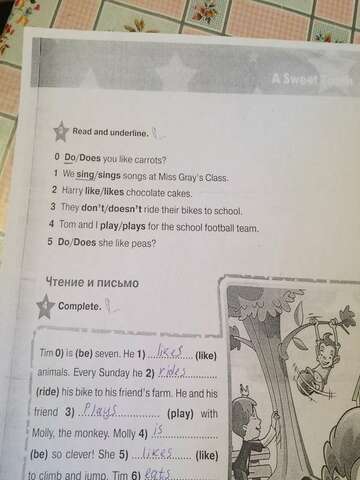 A Sweet Tooth
3 Read and underline.
0 Do/Does you like carrots?
1 We sing/sings songs at Miss Gray's Class.
2 Harry like/likes chocolate cakes.
3 They don't/doesn't ride their bikes to school.
4 Tom and I play/plays for the school football team.
5 Do/Does she like peas?
Чтение и письмо
4 Complete.
Tim 0) is (be) seven. He 1) likes (like)
animals. Every Sunday he 2) rides
(ride) his bike to his friend's farm. He and his
friend 3) Plays (play) with
Molly, the monkey. Molly 4) is
(be) so clever! She 5) likes (like)
to climb and jump. Tim 6) eats